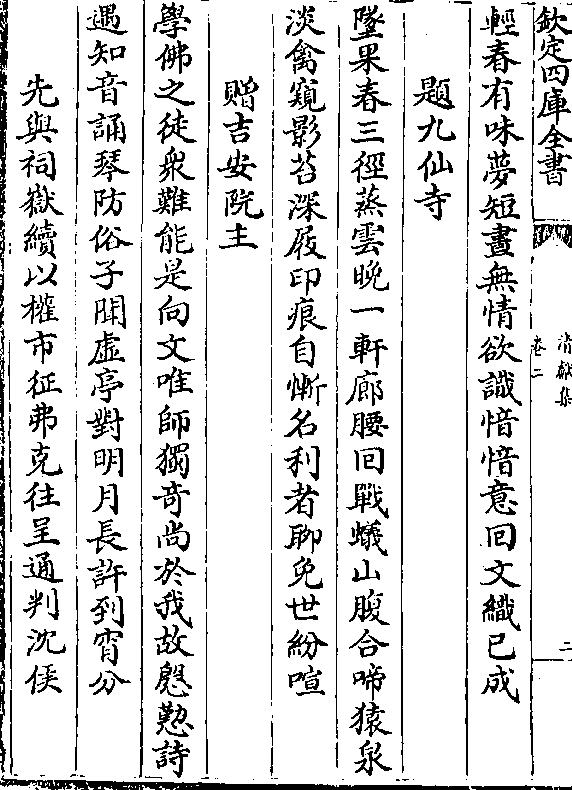 欽定四庫全書
清獻集
卷二
二
輕春有味夢短晝無情欲識愔愔意回文織已成
題九仙寺
墜果春三徑蒸雲晚一軒廊腰回戰蟻山腹合啼猿泉
淡禽窺影苔深屐印痕自慙名利者聊免世紛喧
贈吉安院主
學佛之徒衆難能是向文唯師獨奇尚於我故慇懃詩
遇知音誦琴防俗子聞虛亭對明月長許到宵分
先與祠嶽續以榷市征弗克往呈通判沈侯